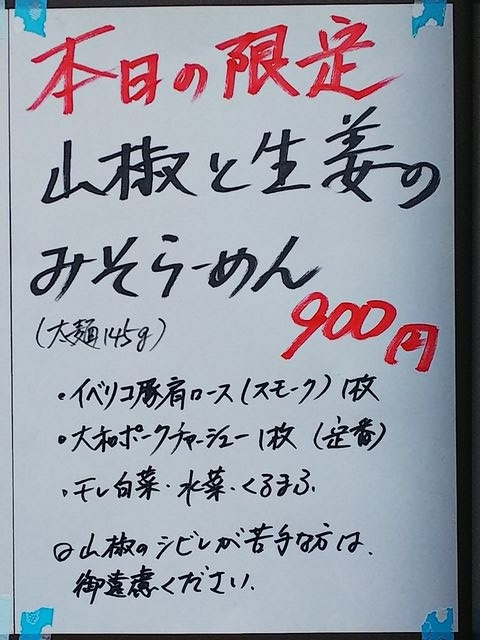 本日の限定
山椒と生姜の
みそらーめん
(太麺145g)
900円
・イベリコ豚肩ロース(スモーク)1枚
・大和ポークチャーシュー1枚(定番)
・干し白菜・水菜・くるまふ
◎山椒のシビレが苦手な方は、
御遠慮ください。